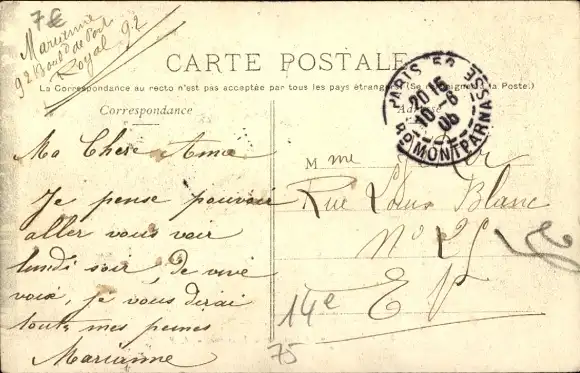 7€
Marianne
92 Boul'd de Port
Royal 92
CARTE POSTALE
La Correspondance au recto n'est pas acceptée par tous les pays étrangers (Se renseigner à la Poste)
Correspondance
Adresse
PARIS 53
20 15
10 - 6
05
Bd MONTPARNASSE
Ma Chere Amie
Je pense pouvoir
aller vous voir
lundi soir, de vive
voix, je vous dirai
toute mes peines
Marianne
Mme
Rue Louis Blanc
No 25
E V
14e
75